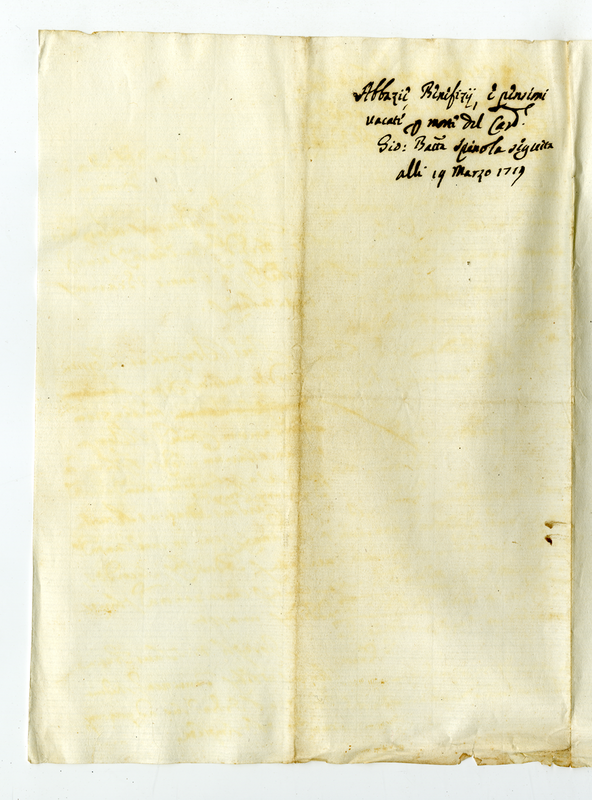 Abbazie Benefizij, e pensioni
vacate p morte del Card.
Gio: Batta Spinola seguita
alli 19 Marzo 1719